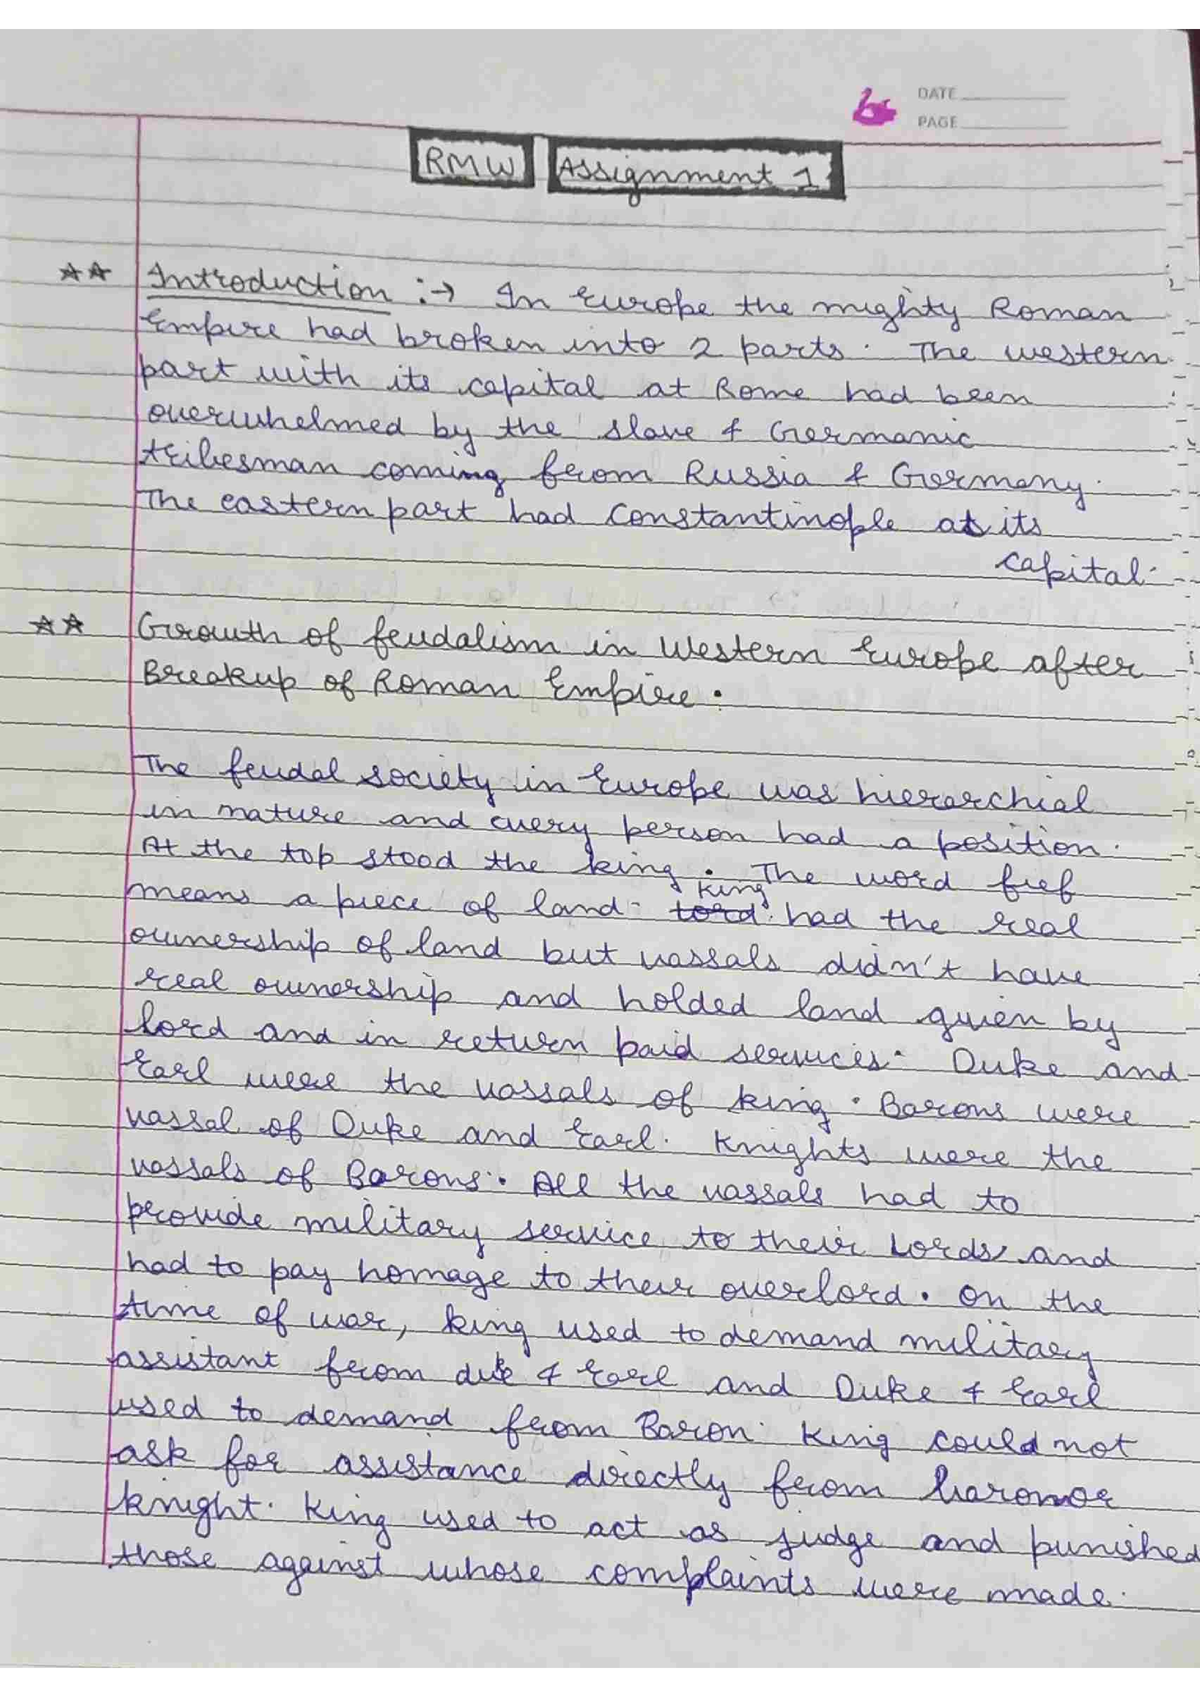 DATE
PAGE
RMW Assignment 1
** Introduction :→ In Europe the mighty Roman
Empire had broken into 2 parts. The western
part with its capital at Rome had been
overwhelmed by the slave & Germanic
tribesman coming from Russia & Germany.
The eastern part had Constantinople as its
capital.
** Growth of feudalism in Western Europe after
Breakup of Roman Empire.
The feudal society in Europe was hierarchial
in nature and every person had a position.
At the top stood the king. The word fief
king
means a piece of land. lord had the real
ownership of land but vassals didn't have
real ownership and holded land given by
lord and in return paid services. Duke and
Earl were the vassals of king. Barons were
vassal of Duke and Earl. Knights were the
vassals of Barons. All the vassals had to
provide military service to their Lords and
had to pay homage to their overlord. On the
time of war, king used to demand military
assistant from duke & Earl and Duke & Earl
used to demand from Baron. King could not
ask for assistance directly from baron or
knight. King used to act as judge and punished
those against whose complaints were made.